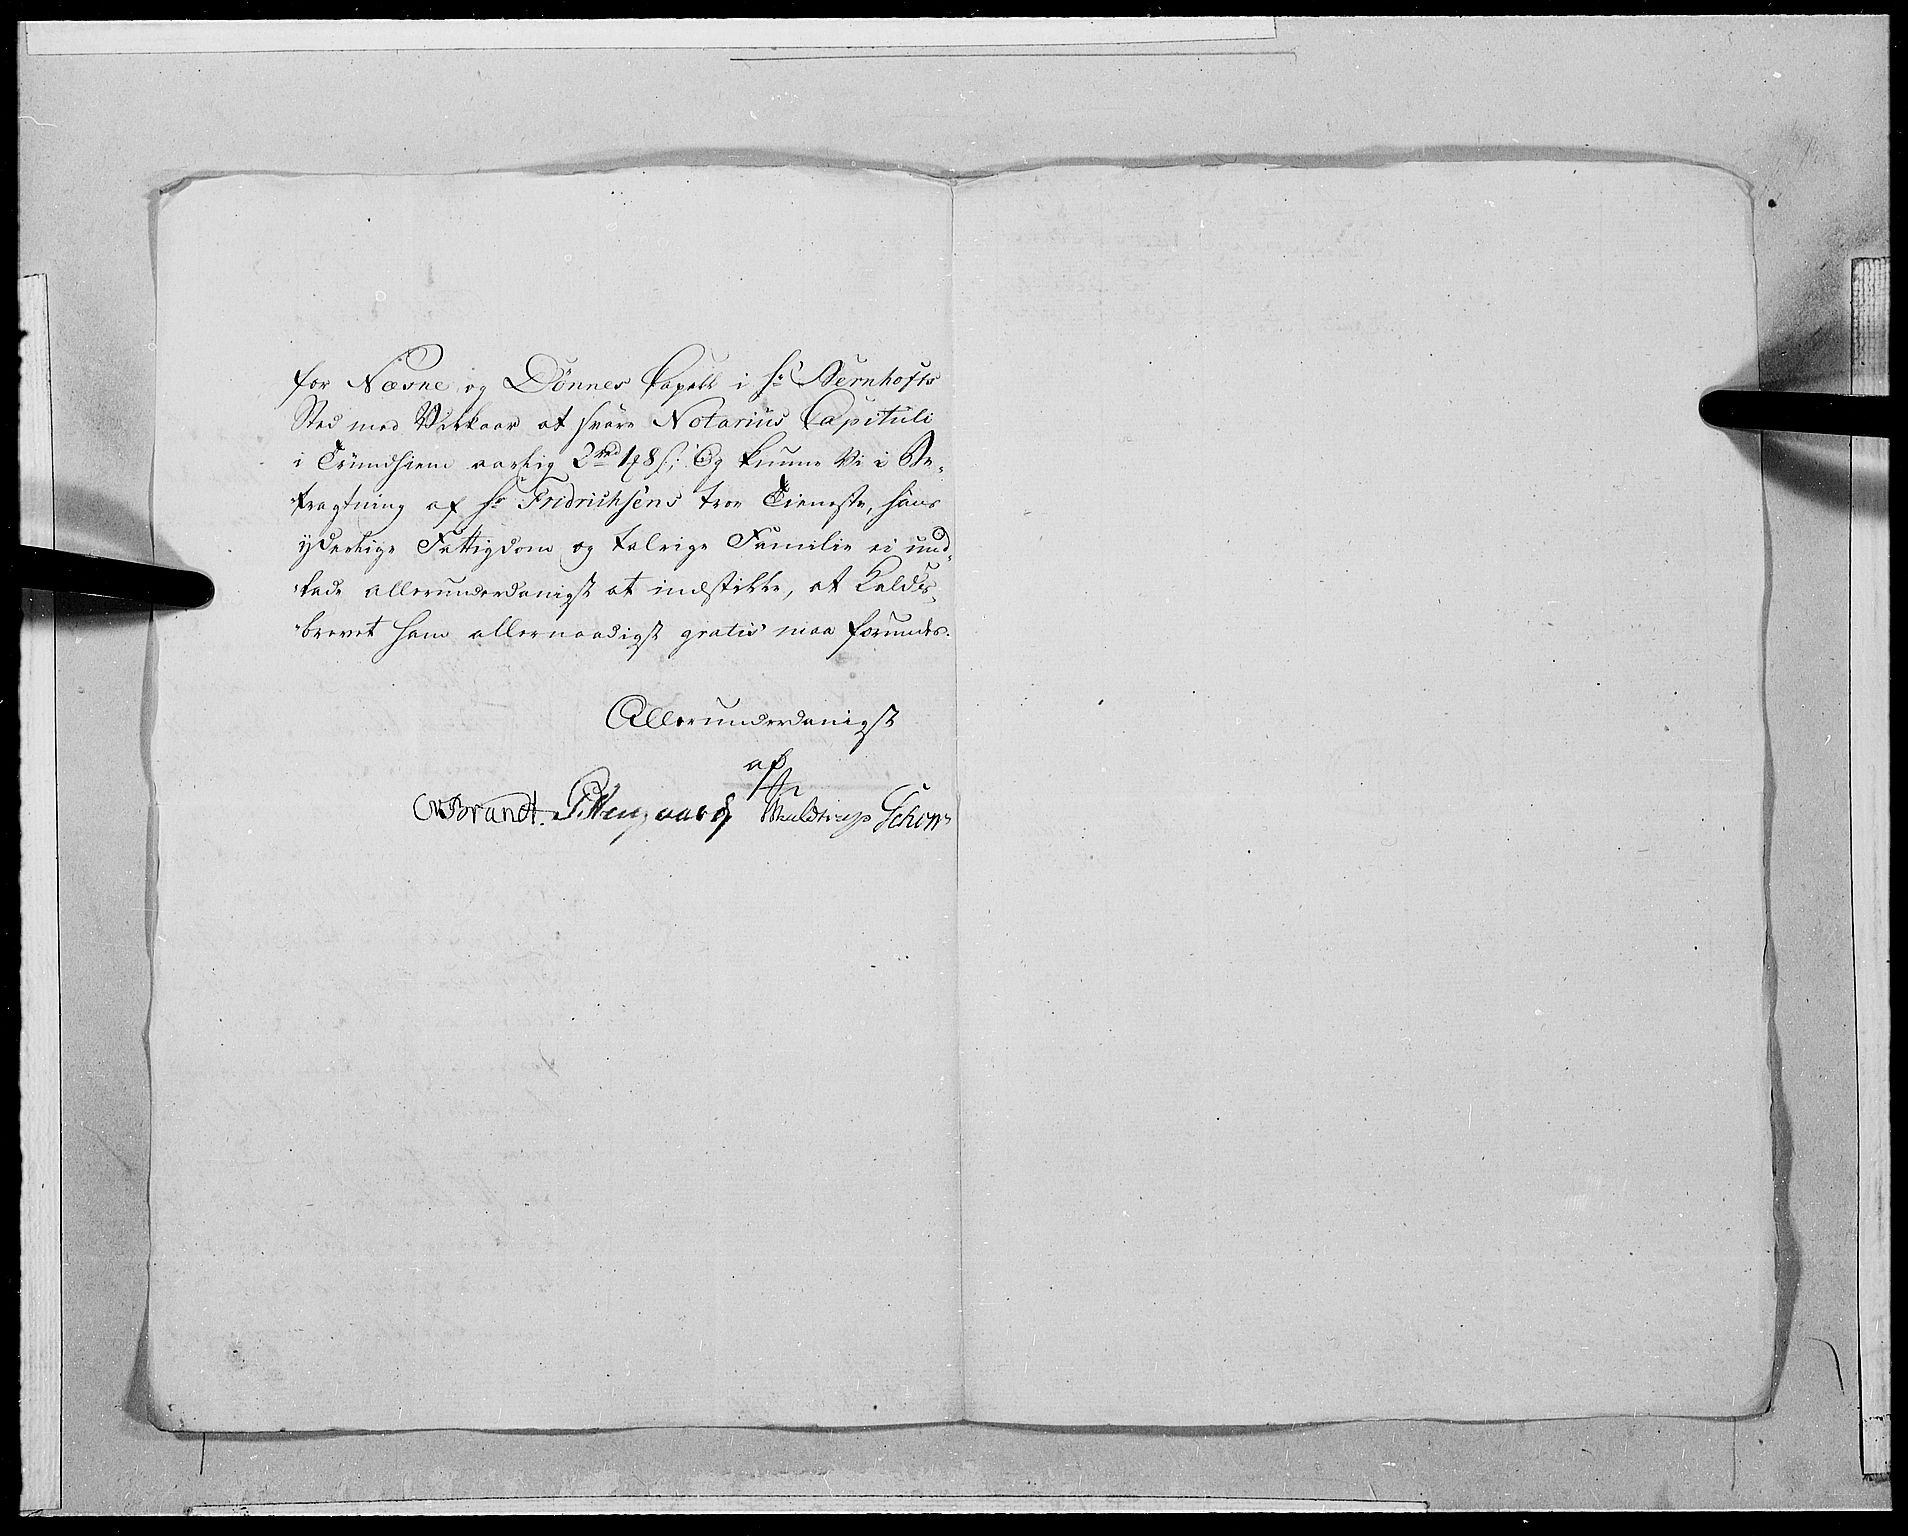 for Næsne og Dönnes Capell i Hr Bernhofts
Sted med Vilkaar at svare Notarius Capituli
i Trundhiem aarlig 2 rd 48 s; Og kunne Vi i Be-
tragtning af Hr Fridrichsens troe Tieneste, hans
yderlige Fattigdom og talrige Familie ei und-
lade allerunderdanigst at indstille, at Kalds-
brevet ham allernaadigst gratis maa forundes.
Allerunderdanigst
af
Brandt. Stengaard Schow